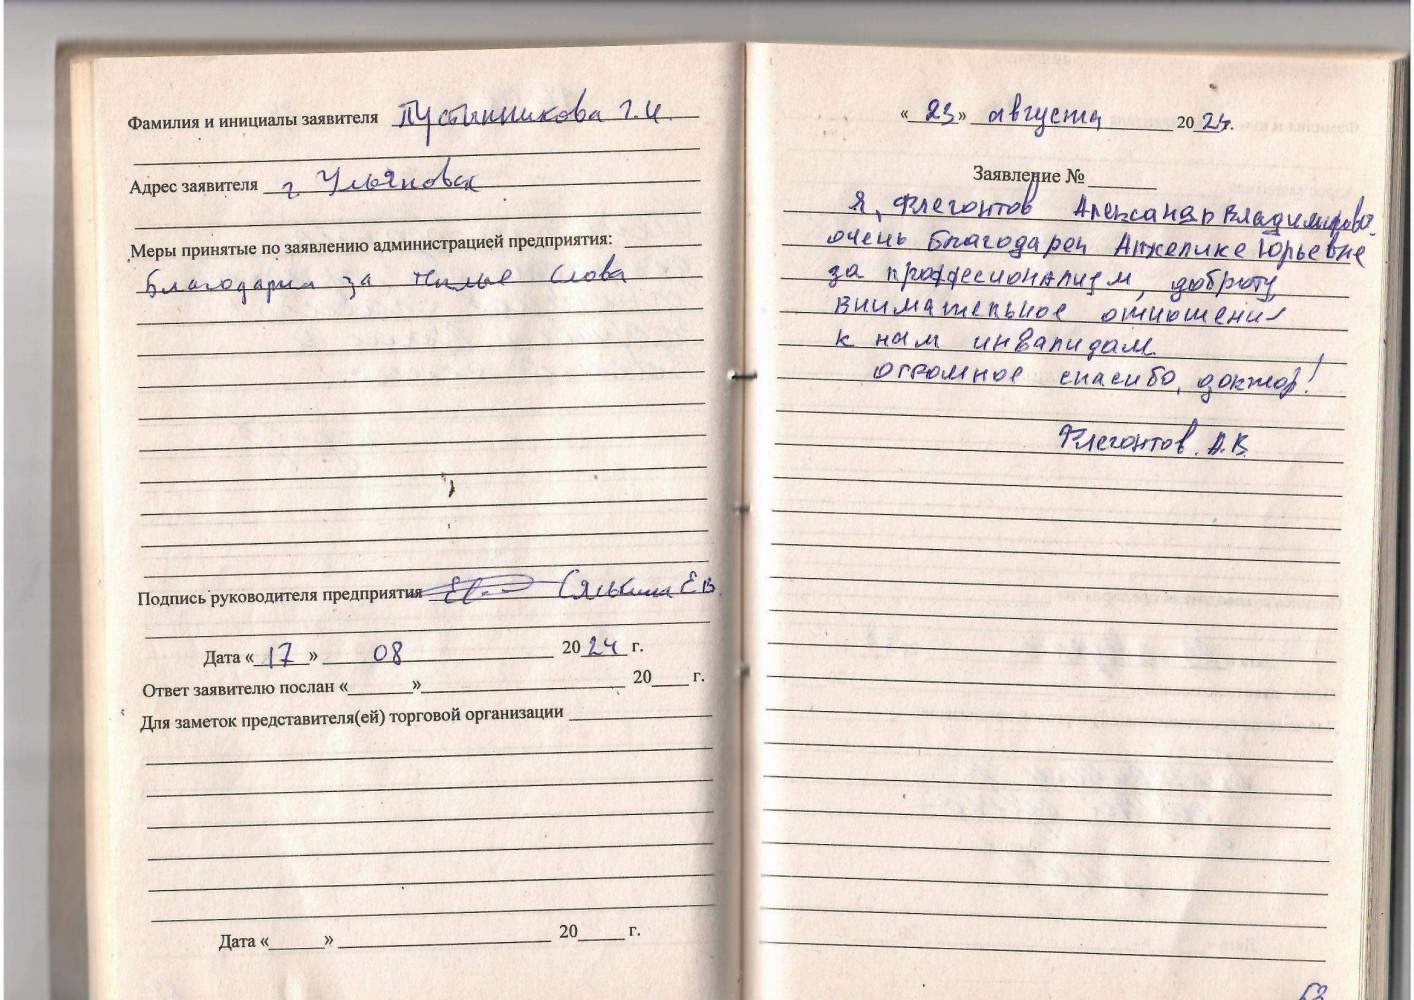 Фамилия и инициалы заявителя Пустынникова Г.И.
Адрес заявителя г Ульяновск
Меры принятые по заявлению администрацией предприятия:
Благодарим за тёплые слова
Подпись руководителя предприятия
Дата « 17 » 08 20 24 г.
Ответ заявителю послан «      » 20    г.
Для заметок представителя(ей) торговой организации
Дата «      » 20    г.
« 23 » августа 20 24 г.
Заявление №
Я, Флегонтов Александр Владимирович
очень благодарен Анжелике Юрьевне
за профессионализм, доброту,
внимательное отношение
к нам инвалидам.
огромное спасибо, доктор!
Флегонтов. А.В.